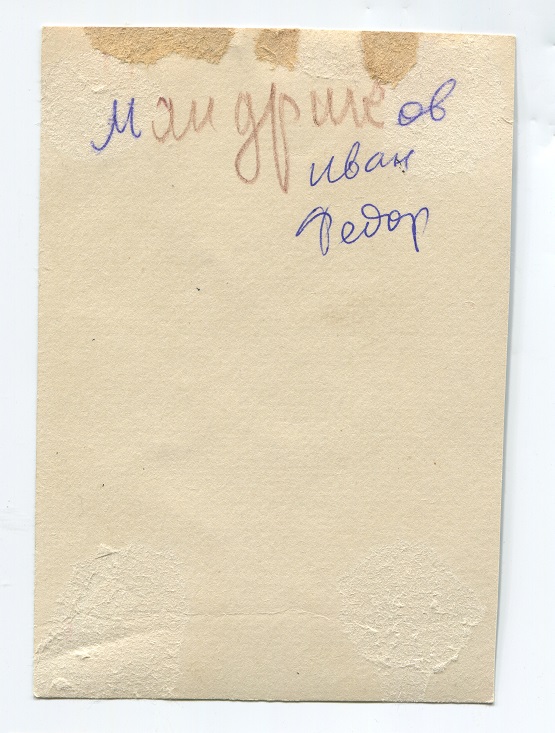 Мандриков
Иван
Федор